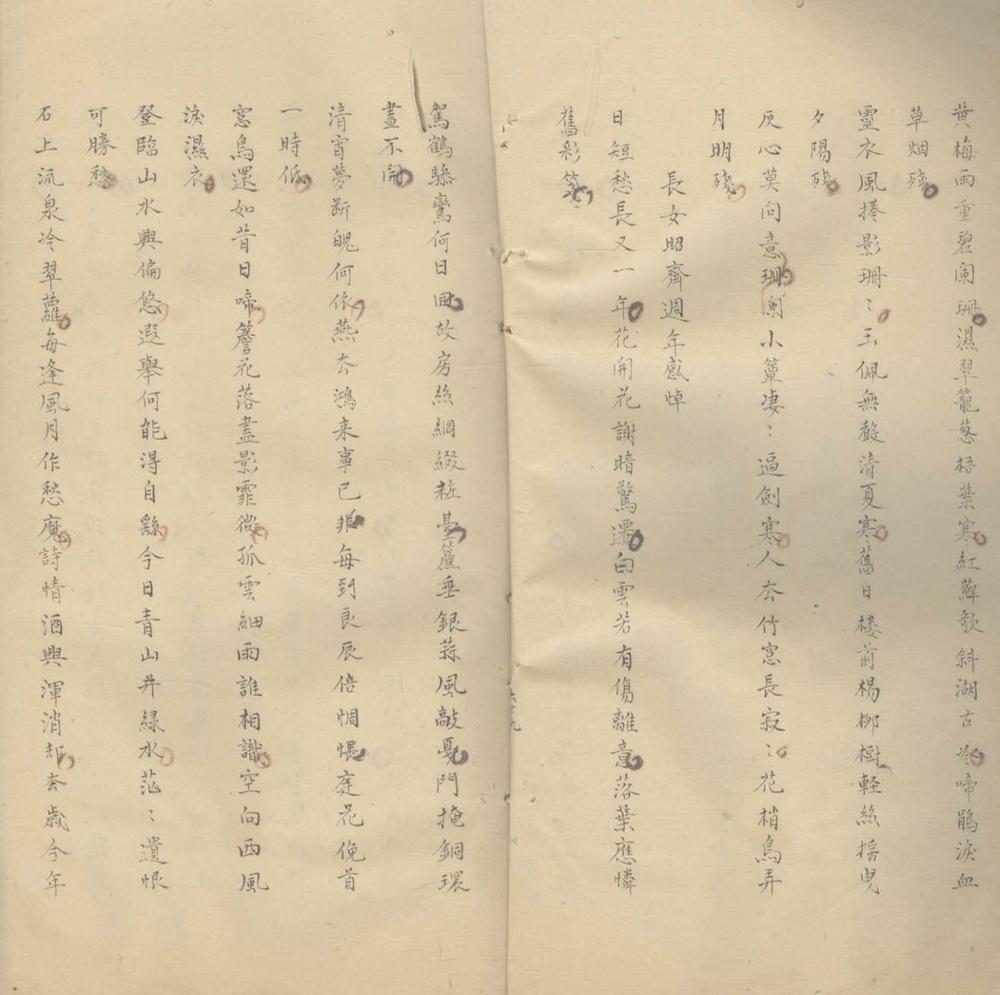 黄梅雨重碧闌珊濕翠籠葱梧葉寒紅蘚欹斜湖古冷啼鵑淚血
草烟殘
靈衣風捲影珊〻玉佩無聲清夏寒舊日樓前楊柳樹軽絲搖曳
夕陽殘
灰心莫向意珊闌小簟凄〻逼劍寒人去竹窓長寂〻花梢鳥弄
月明殘
長女昭齊週年感悼
日短愁長又一年花開花謝暗驚遷白雲若有傷離意落葉應憐
舊彩箋
駕鶴驂鸞何日回故房絲網綴粧臺簾垂銀蒜風敲戛門掩銅環
晝不開
清宵夢斷魄何依燕去鴻来事已非每到良辰倍惆悵庭花俛首
一時低
窓鳥還如昔日啼簷花落盡影霏微孤雲細雨誰相識空向西風
淚濕衣
登臨山水興偏悠遐舉何能得自繇今日青山并緑水茫〻遺恨
可勝愁
石上流泉冷翠蘿每逢風月作愁魔詩情酒興渾消却去歲今年